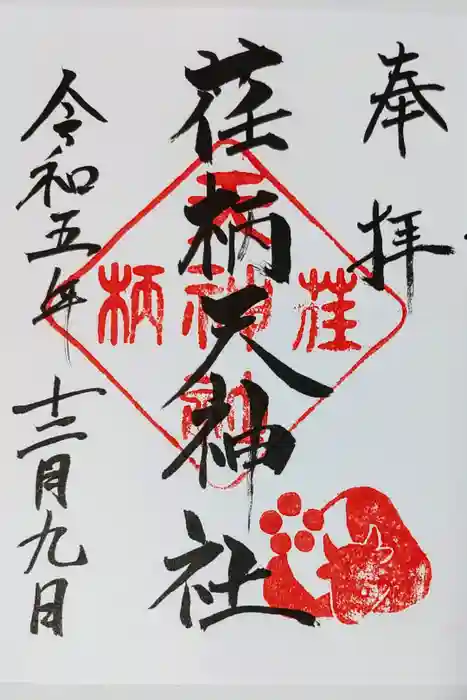 奉拝
荏柄天神社
令和五年十二月九日
荏
天神社
柄